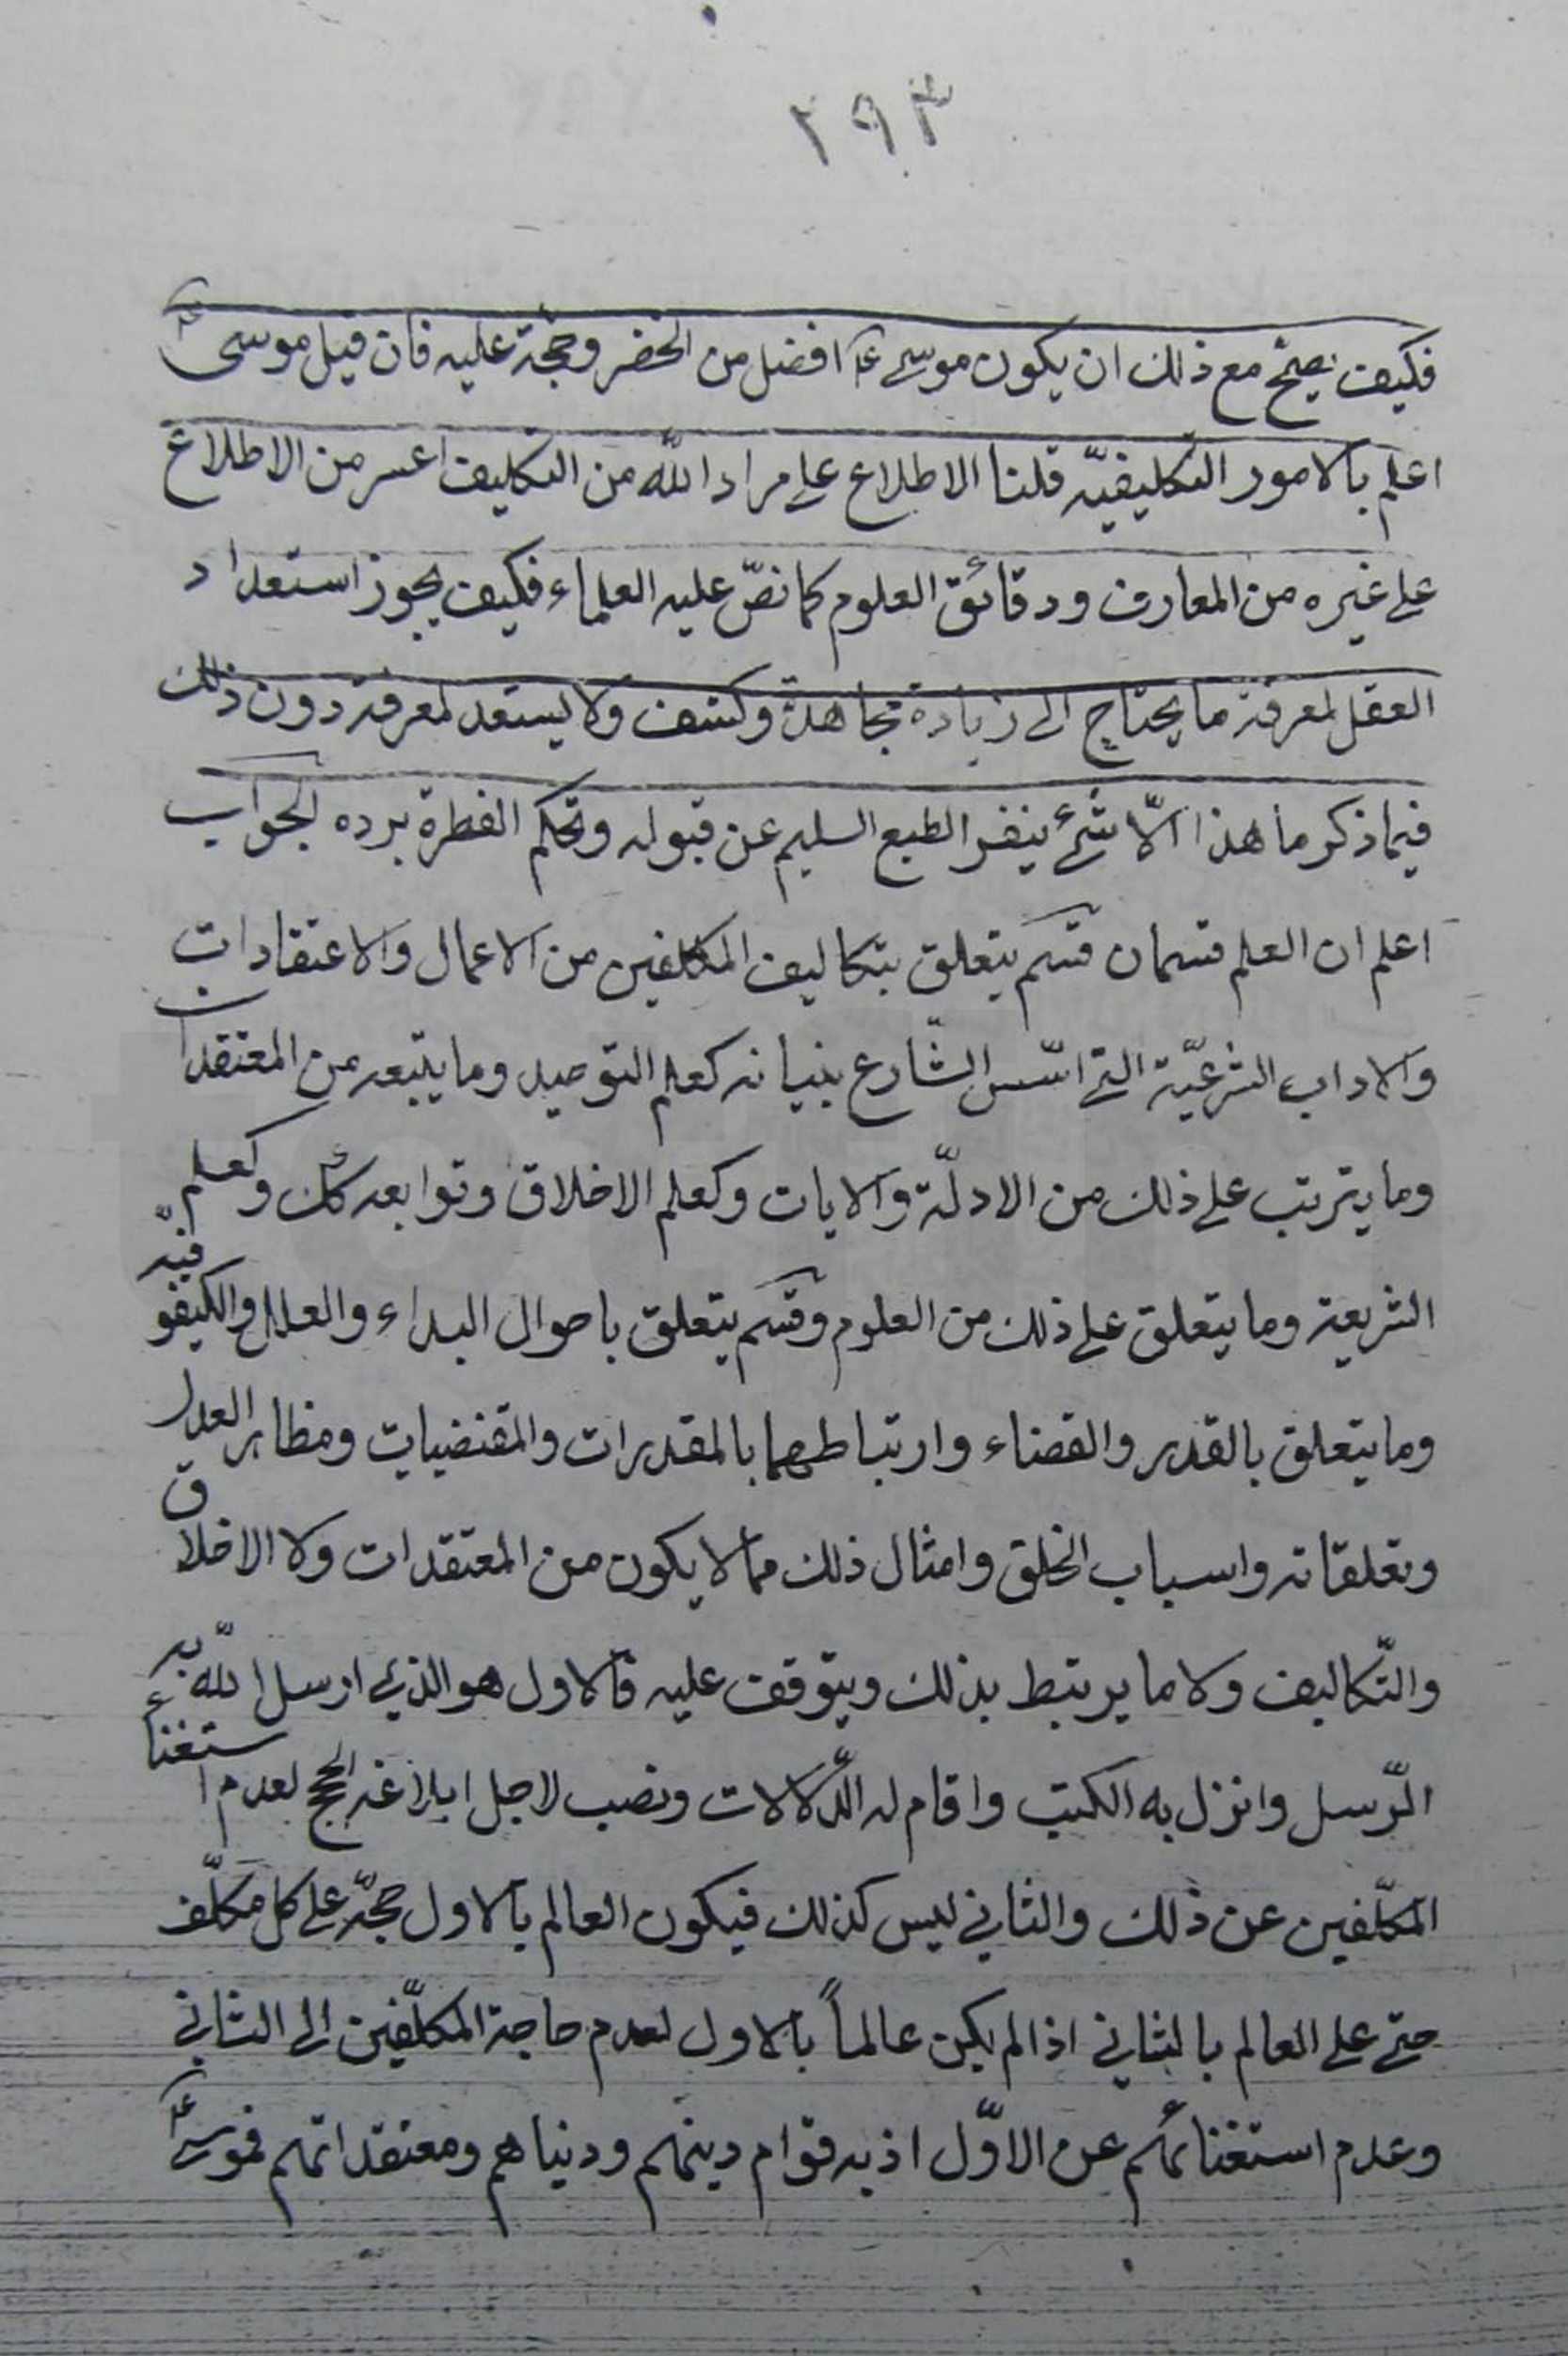 ٢٩٣
فكيف يصحّ مع ذلك ان يكون موسى ع افضل من الخضر وحجّة عليه فان قيل موسى ع
اعلم بالامور التكليفيّه قلنا الاطلاع على مراد اللّه من التكليف اعسر من الاطلاع
على غيره من المعارف ودقائق العلوم كما نصّ عليه العلماء فكيف يجوز استعداد
العقل لمعرفة ما يحتاج الى زيادة مجاهدة وكشف ولا يستعد لمعرفة دون ذلك
فيما ذكر ما هذا الّا شئ ينفر الطبع السليم عن قبوله وتحكم الفطرة برده الجواب
اعلم ان العلم قسمان قسم يتعلق بتكاليف المكلفين من الاعمال والاعتقادات
والاداب الشرعيّة التي اسّس الشّارع بنيانه كعلم التوحيد وما يتبعه من المعتقدات
وما يترتب على ذلك من الادلّة والايات وكعلم الاخلاق وتوابعه كك وكعلم
الشريعة وما يتعلق على ذلك من العلوم وقسم يتعلق باحوال البداء والعلل والكيفوفيّه
وما يتعلق بالقدر والقضاء وارتباطهما بالمقدرات والمقتضيات ومظاهر العدل
وتعلقاته واسباب الخلق وامثال ذلك مما لا يكون من المعتقدات ولا الاخلاق
والتّكاليف ولا ما يرتبط بذلك ويتوقف عليه فالاول هو الذي ارسل اللّه به
الرّسل وانزل به الكتب واقام له الدّلالات ونصب لاجل ابلاغه الحجج لعدم استغناء
المكلّفين عن ذلك والثاني ليس كذلك فيكون العالم بالاول حجّة على كل مكلّف
حتى على العالم بالثاني اذا لم يكن عالماً بالاول لعدم حاجة المكلّفين الى الثاني
وعدم استغنائهم عن الاوّل اذ به قوام دينهم ودنياهم ومعتقداتهم فموسى ع